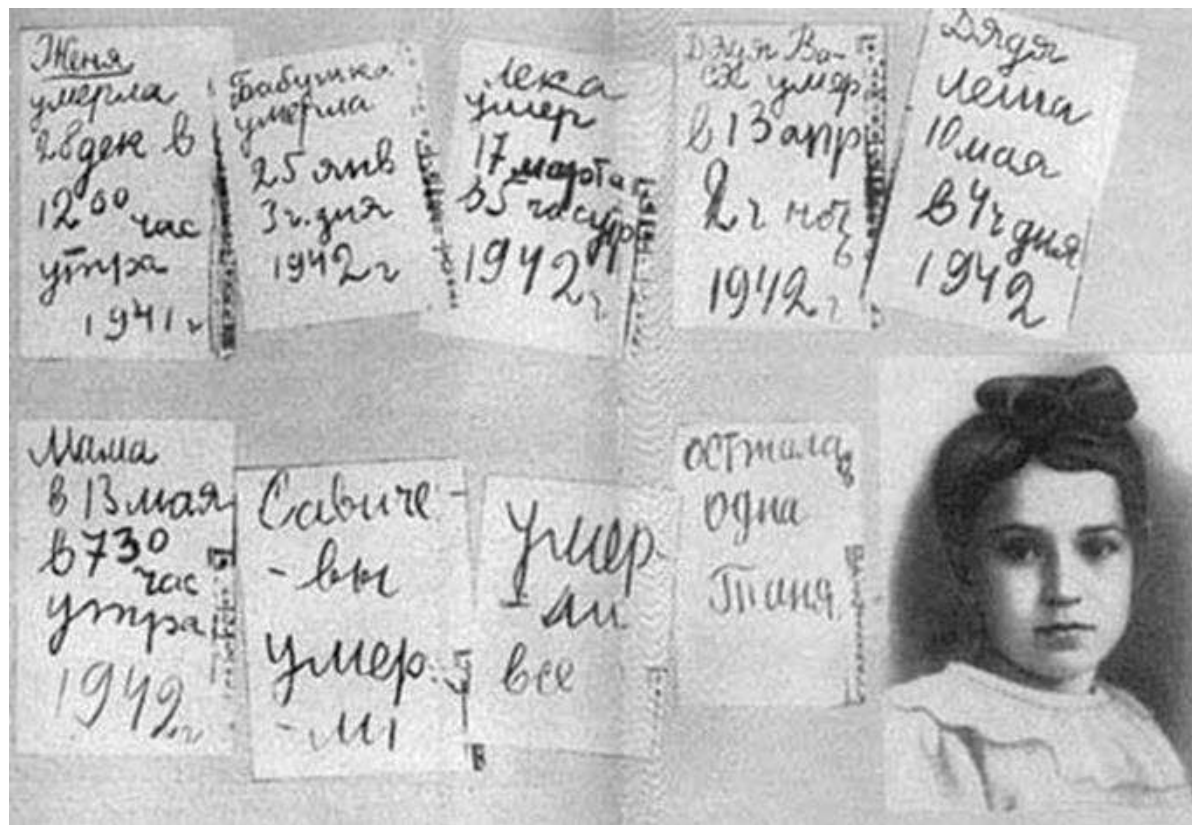 Женя
умерла
28 дек в
12 00 час
утра
1941 г
Бабушка
умерла
25 янв
3 ч. дня
1942 г
Лека
умер
17 марта
в 5 час утр
1942 г
Дядя Ва-
ся умер
в 13 апр
2 ч ночь
1942 г
Дядя
Леша
10 мая
в 4 ч дня
1942
Мама
в 13 мая
в 7 30
час
утра
1942 г
Савиче-
-вы
умер-
-ли
умер-
ли
все
осталась
одна
Таня